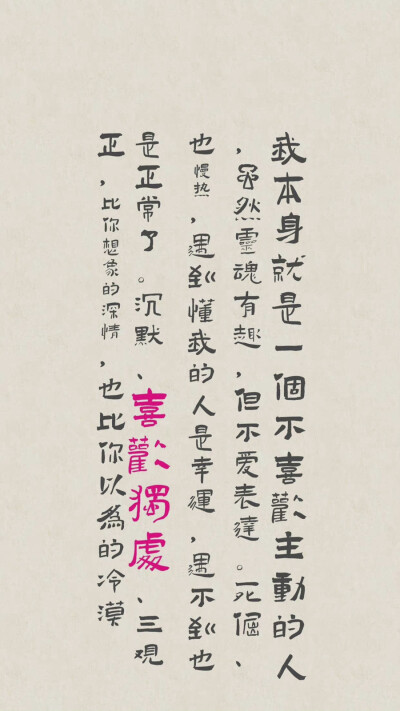 我本身就是一個不喜歡主動的人
，虽然靈魂有趣，但不爱表達。死倔、
也慢热，遇到懂我的人是幸運，遇不到也
是正常了。沉默、喜歡獨處、三观
正，比你想象的深情，也比你以為的冷漠